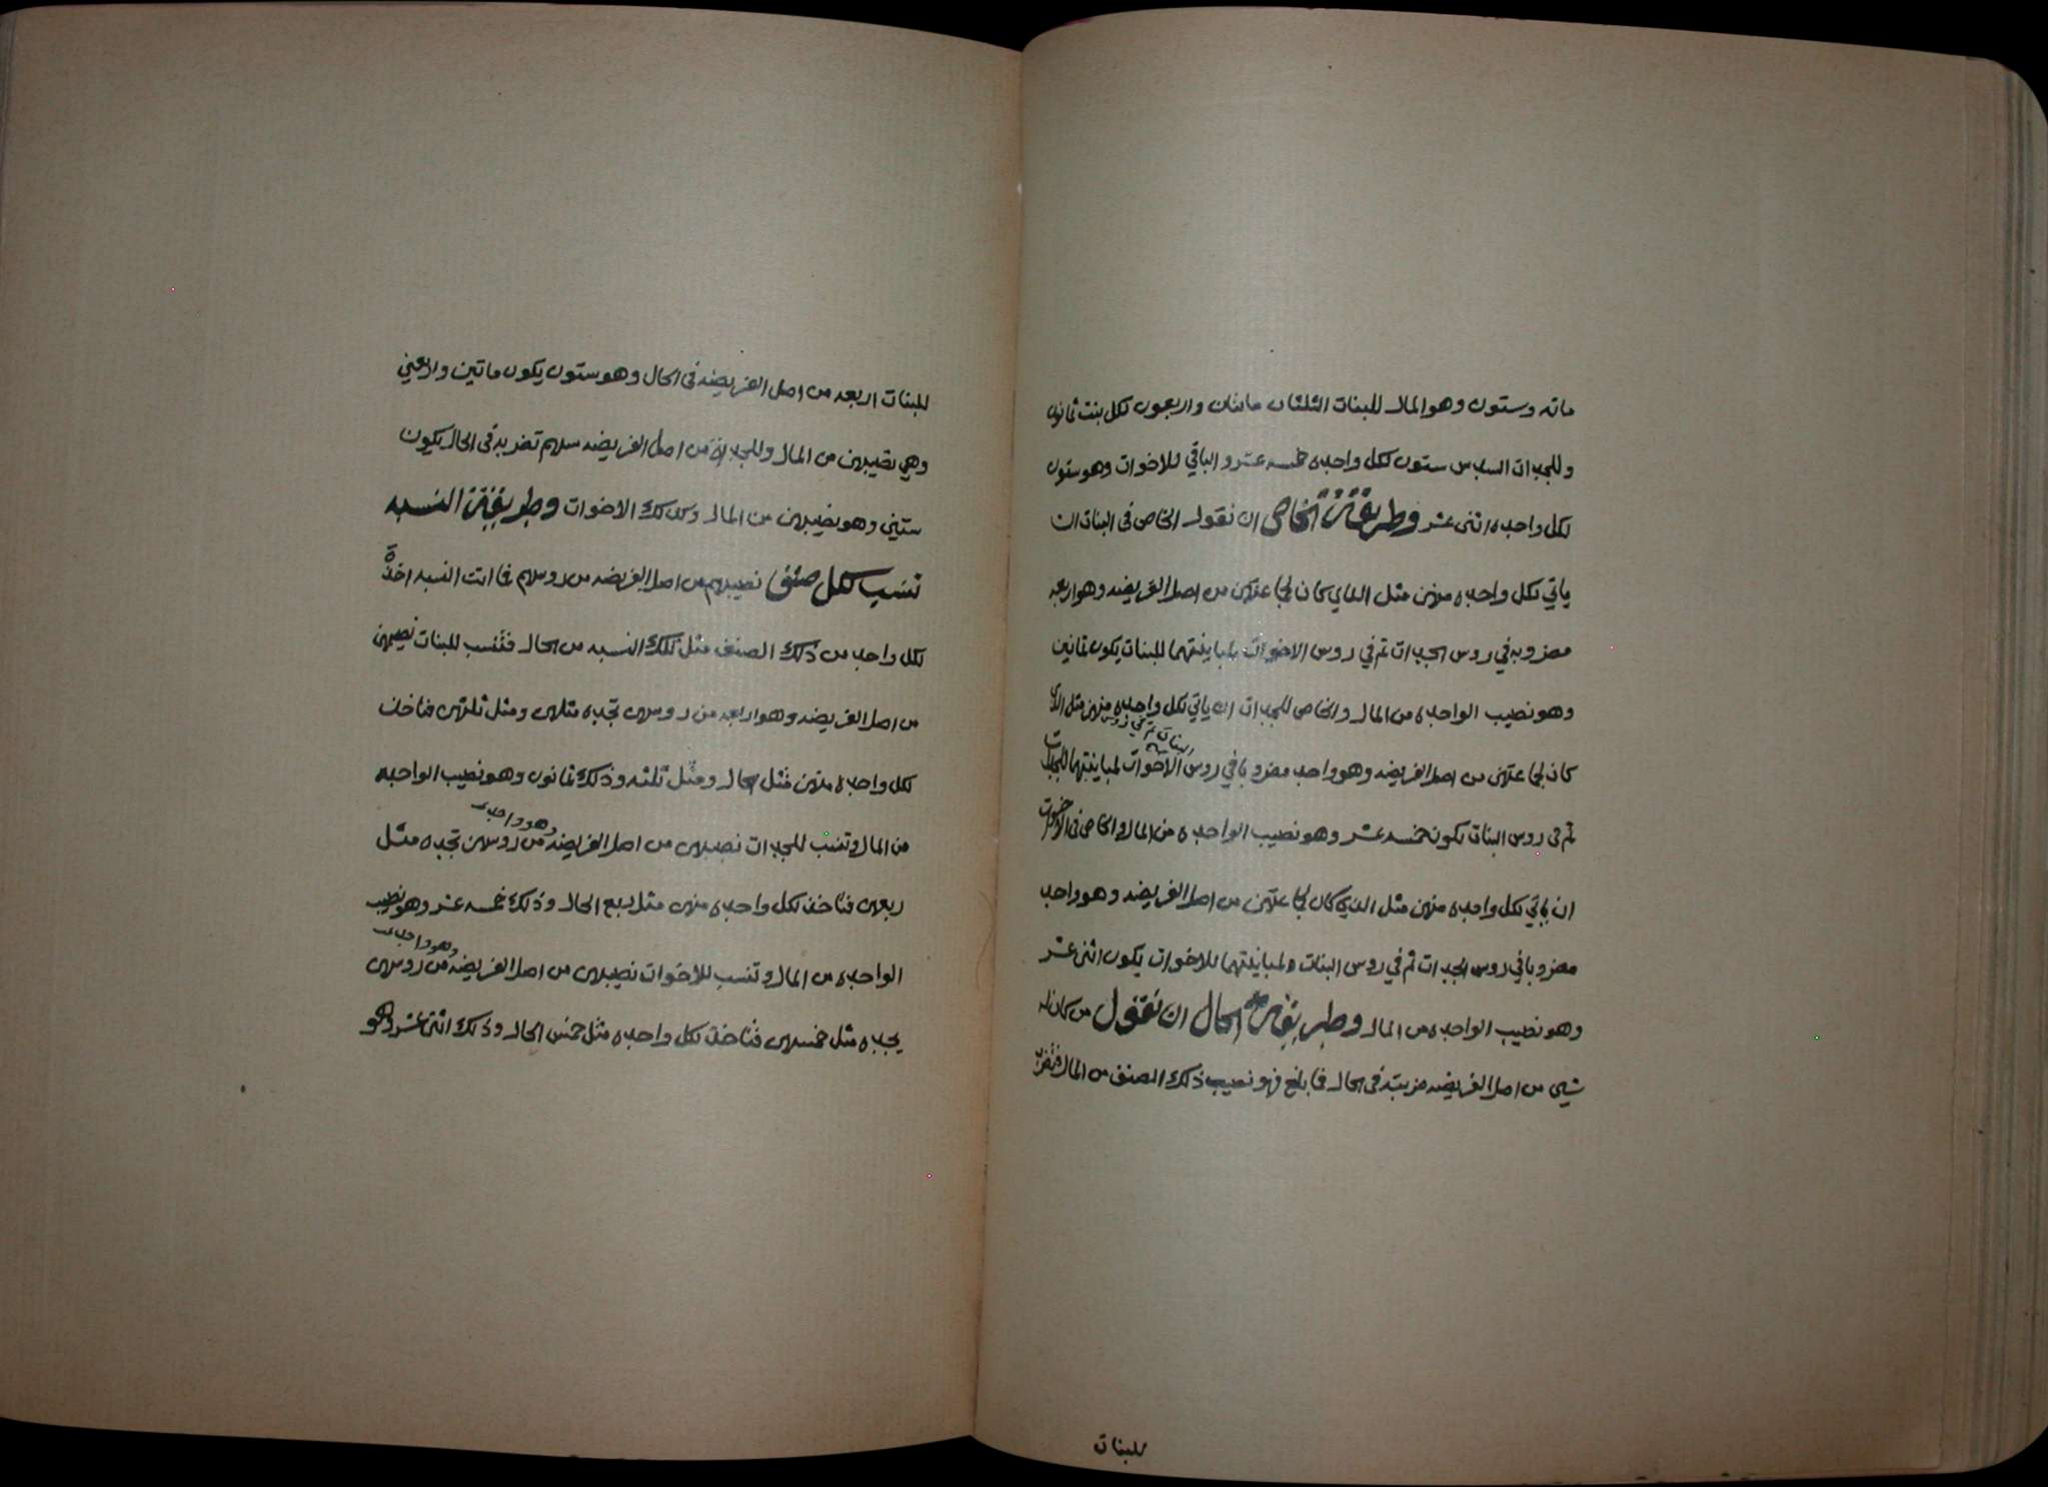 مائه وستون وهو المال للبنات الثلثان مائتان واربعون لكل بنت ثمانون
وللجدات السدس ستون لكل واحده خمسه عشر والباقي للاخوات وهو ستون
لكل واحده اثنى عشر وطريقة الخاص ان نقول الخاص في البنات ان
ياتي لكل واحده منهن مثل الذي كان لجماعتهن من اصل الفريضه وهو اربعه
مضروبه في روس الجدات ثم في روس الاخوات لمباينتهما للبنات يكون ثمانين
وهو نصيب الواحده من المال والخاص للجدات ان ياتي لكل واحده منهن مثل الذي
كان لجماعتهن من اصل الفريضه وهو واحد مضروبا في روس الاخوات لمباينتهما للجدات
ثم في روس البنات يكون خمسه عشر وهو نصيب الواحده من المال والخاص في الاخوات
ان ياتي لكل واحده منهن مثل الذي كان لجماعتهن من اصل الفريضه وهو واحد
مضروبا في روس الجدات ثم في روس البنات لمباينتهما للاخوات يكون اثنى عشر
وهو نصيب الواحده من المال وطريقة الحال ان تقول من كان له
شيء من اصل الفريضه ضربته في الحال فما بلغ فهو نصيب ذلك الصنف من المال فتضرب
للبنات
للبنات اربعه من اصل الفريضه في الحال وهو ستون يكون ماتين واربعين
وهي نصيبهن من المال وللجدات من اصل الفريضه سهم تضربه في الحال يكون
ستين وهو نصيبهن من المال وكذلك الاخوات وطريقة النسبه
تنسب لكل صنف نصيبهم من اصل الفريضه من روسهم فما اتت النسبه اخذة
لكل واحد من ذلك الصنف مثل تلك النسبه من الحال فتنسب للبنات نصيبهن
من اصل الفريضه وهو اربعه من روسهن تجده مثلهن ومثل ثلثهن فتاخذ
لكل واحده منهن مثل الحال ومثل ثلثه وذلك ثمانون وهو نصيب الواحده
من المال وتنسب للجدات نصيبهن من اصل الفريضه وهو واحد من روسهن تجده مثل
ربعهن فتاخذ لكل واحده منهن مثل ربع الحال وذلك خمسه عشر وهو نصيب
الواحده من المال وتنسب للاخوات نصيبهن من اصل الفريضه وهو واحد من روسهن
يجده مثل خمسهن فتاخذ لكل واحده مثل خمس الحال وذلك اثنى عشر وهو